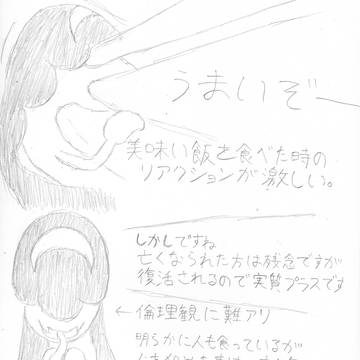 うまいぞー
美味い飯を食べた時の
リアクションが激しい。
しかしですね
亡くなられた方は残念ですが
復活されるので実質プラスです
←倫理観に難アリ
明らかに人も食っているが